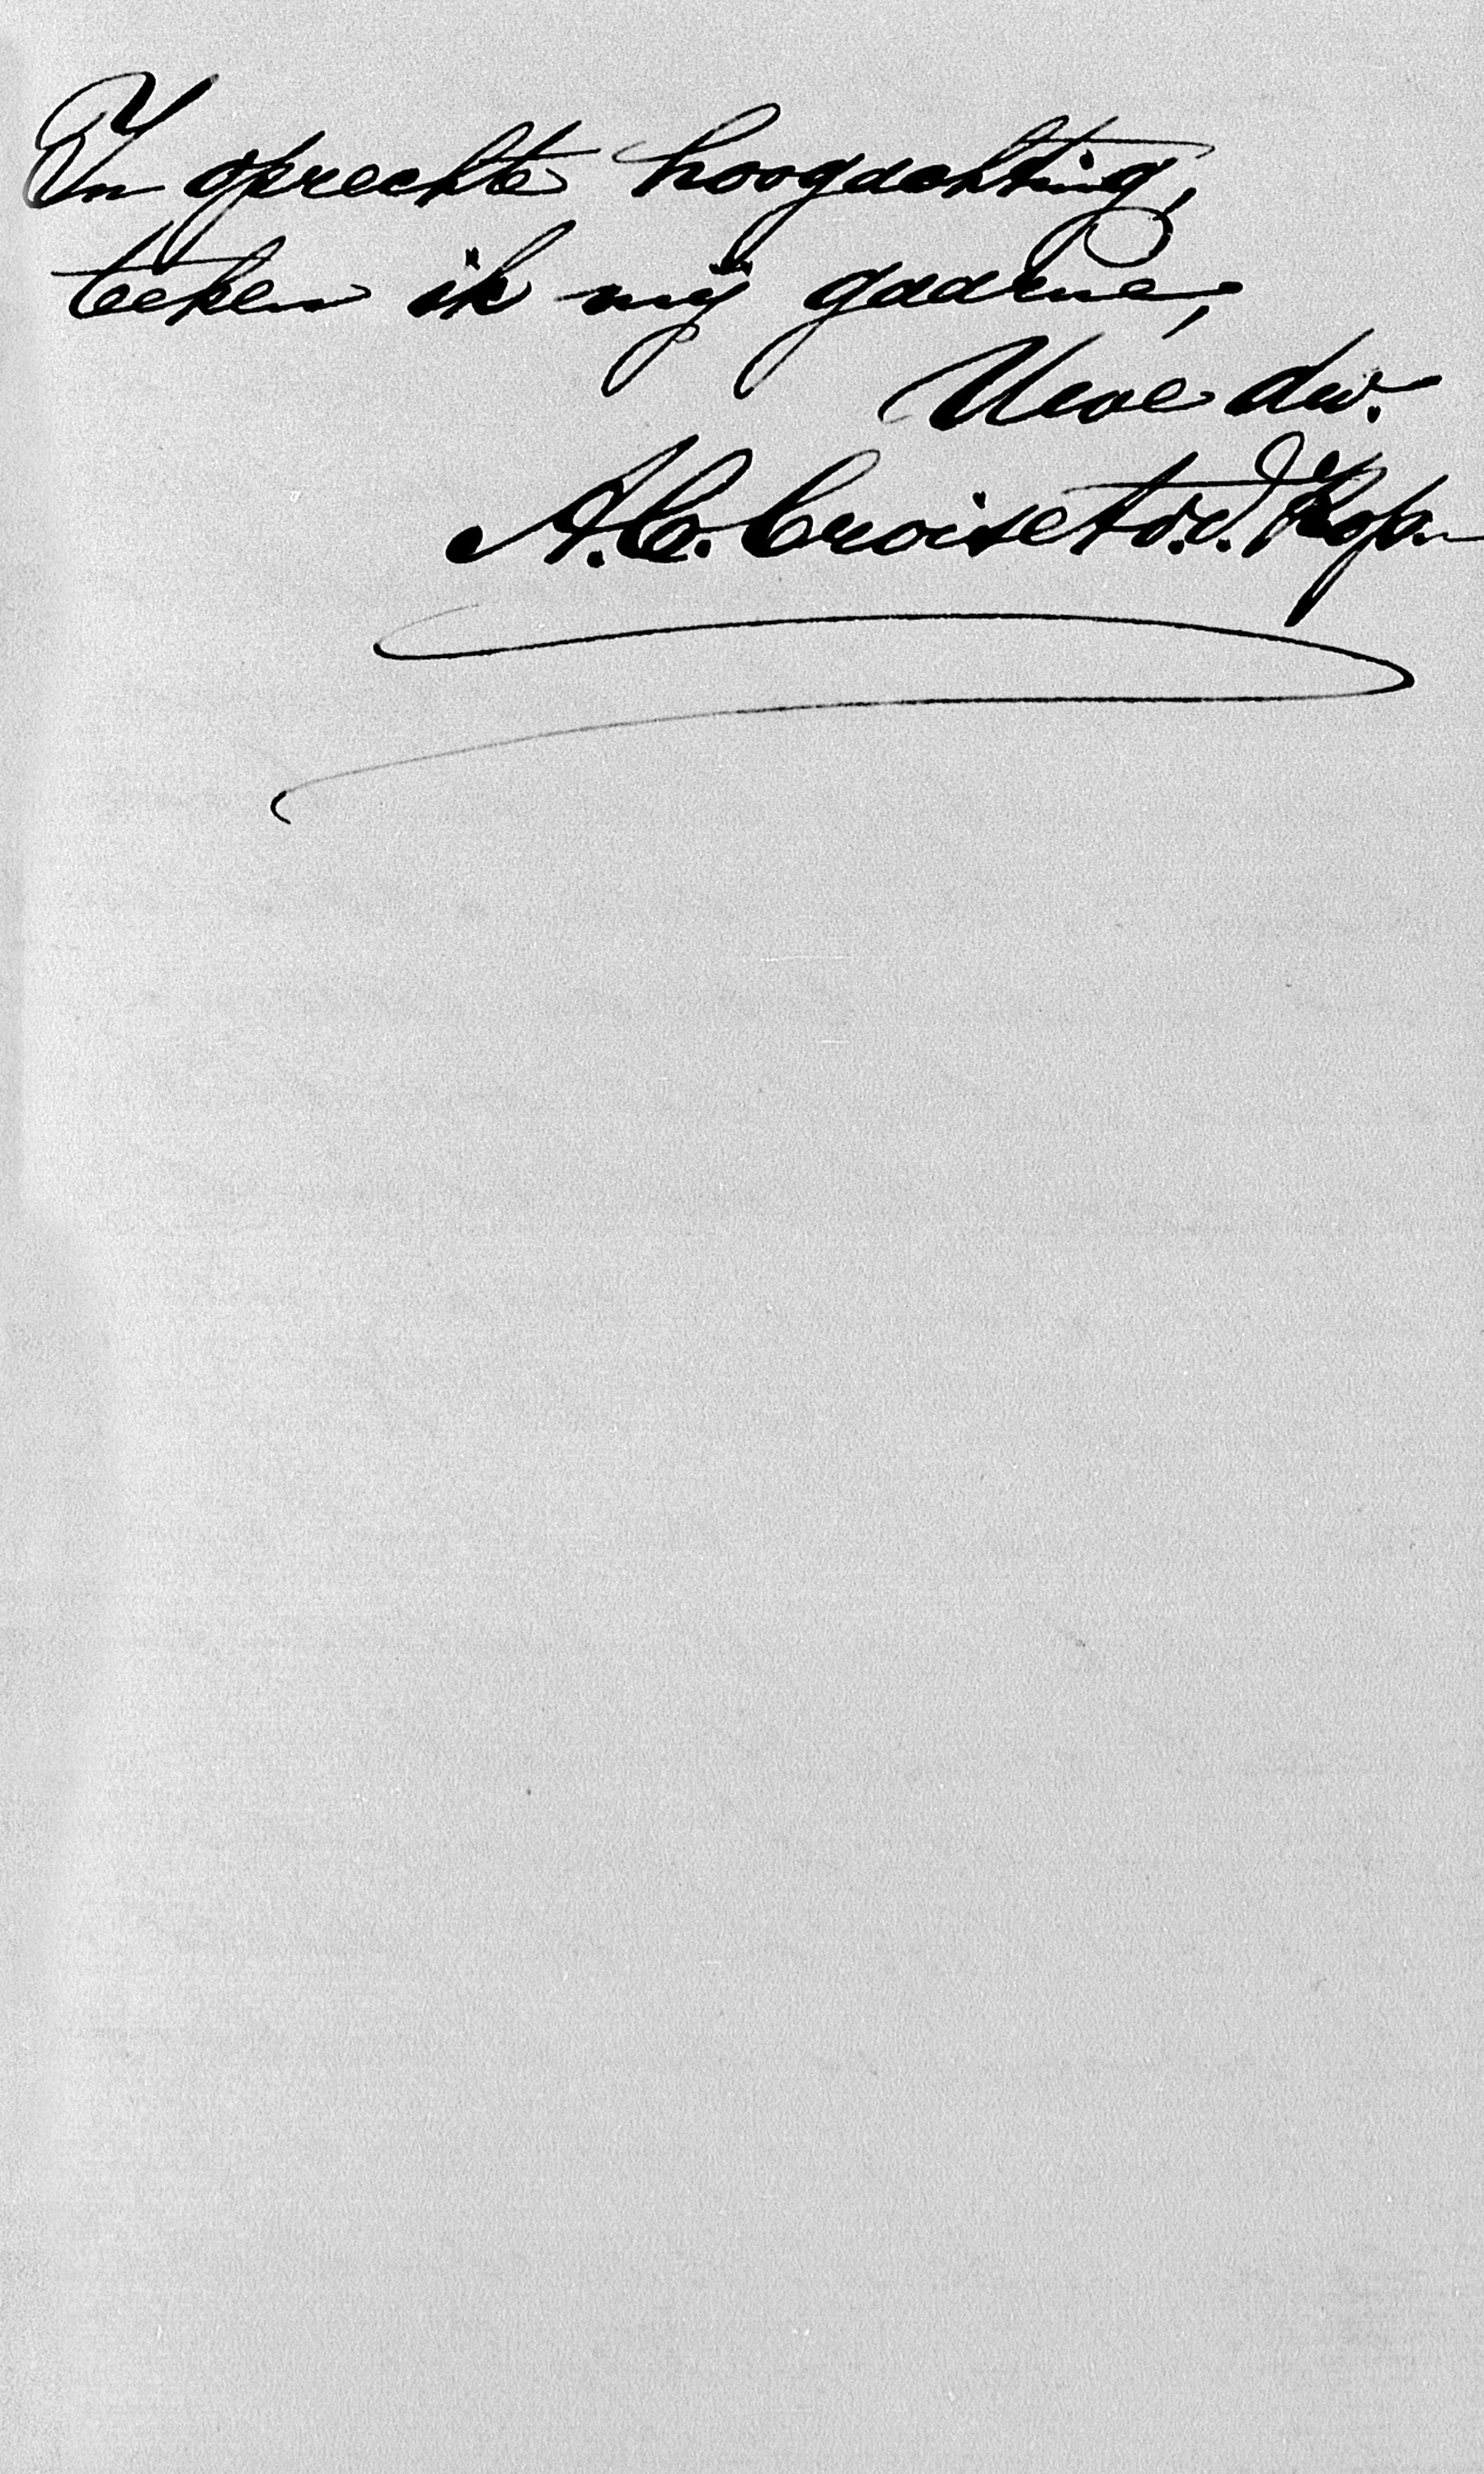 In oprechte hoogachting,
teeken ik mij gaarne,
Uwe dw.
A.C. Croiset v.d. Kop.